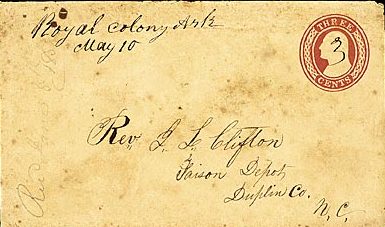 Royal Colony Ark
May 10
THREE
3
CENTS
Rev. J. L. Clifton
Faison Depot
Duplin Co.
N. C.